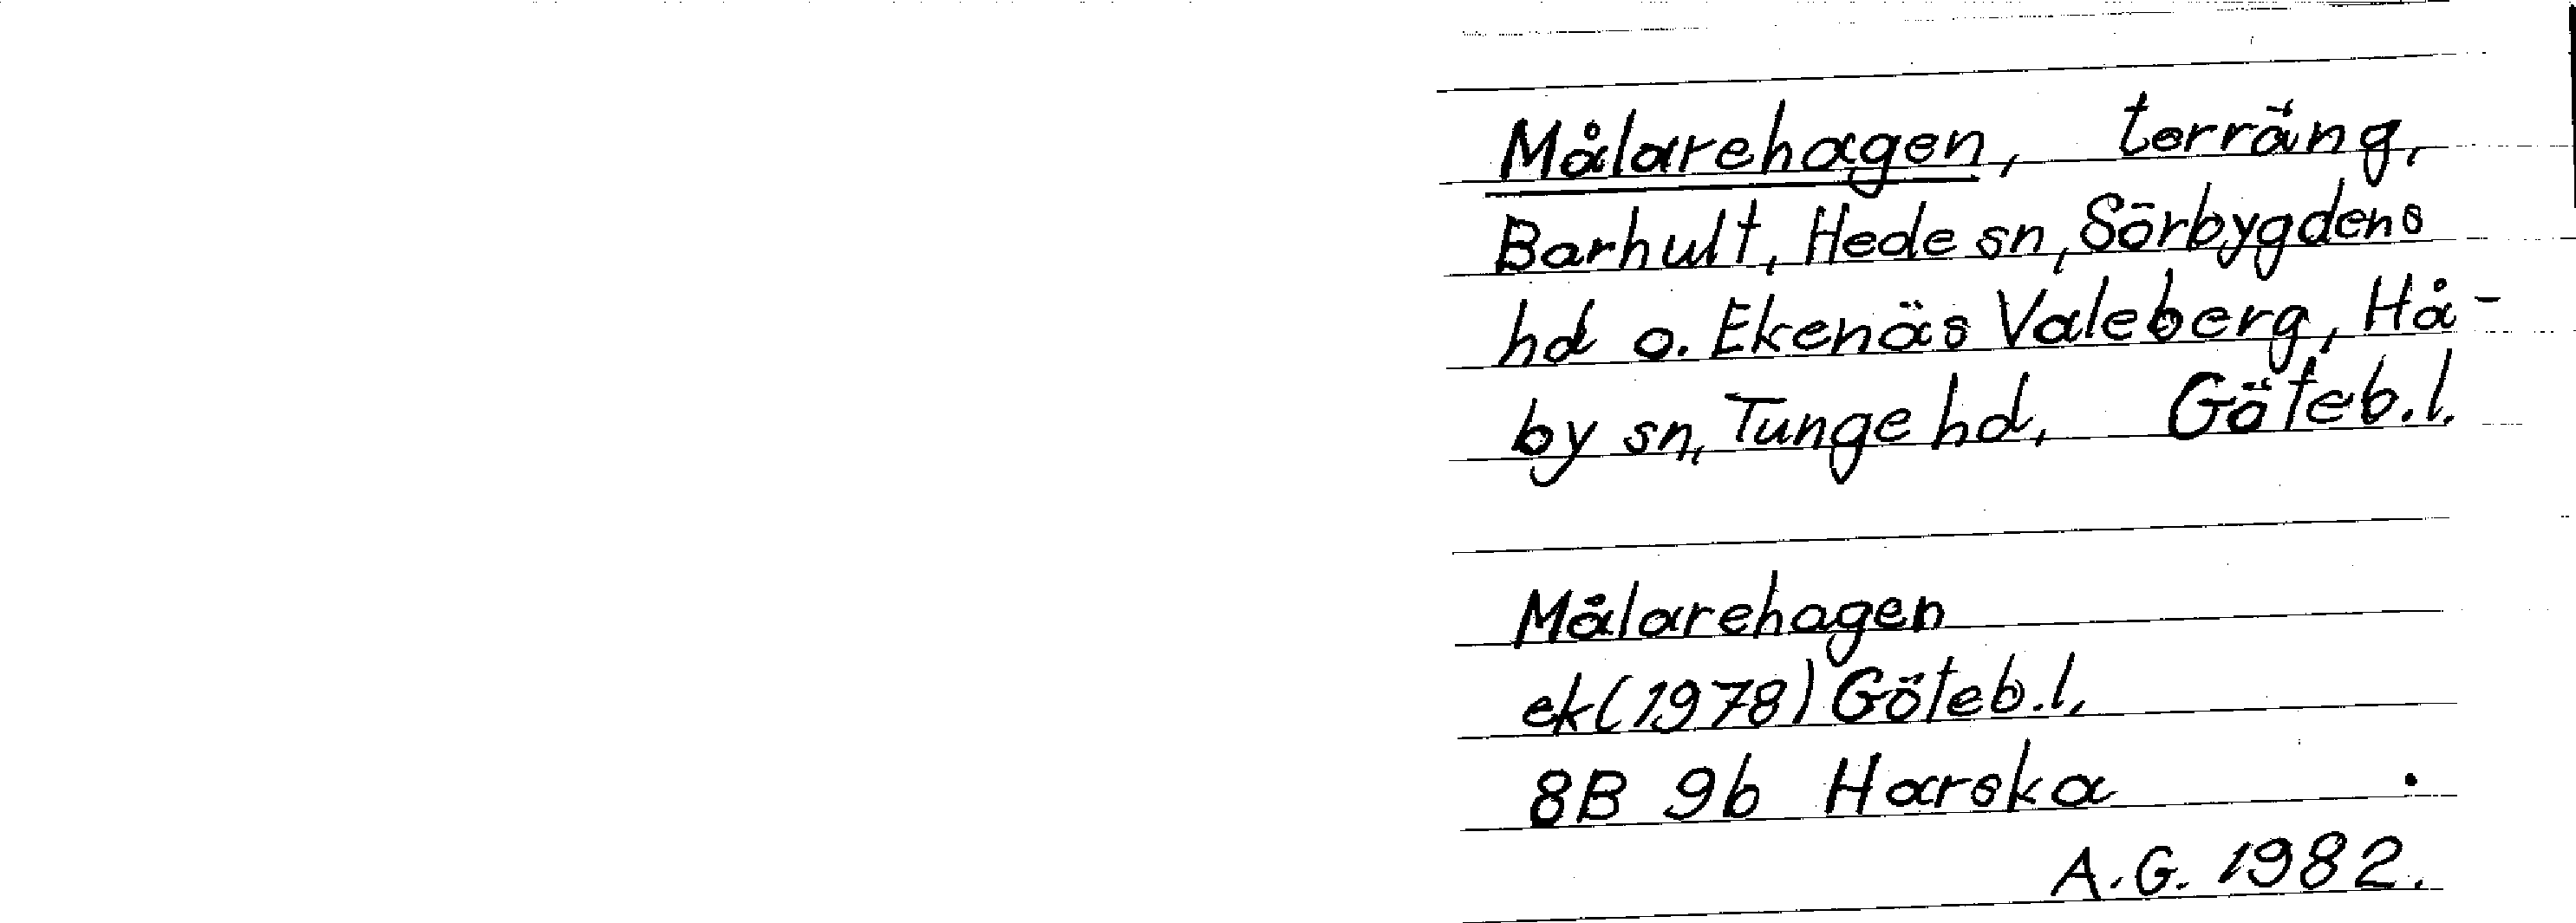 Målarehagen, terräng,
Barhult, Hede sn, Sörbygdens
hd o. Ekenäs Valeberg, Hå-
by sn, Tunge hd, Göteb.l.
Målarehagen
ek(1978) Göteb.l,
8B 9b Harska
A.G. 1982.